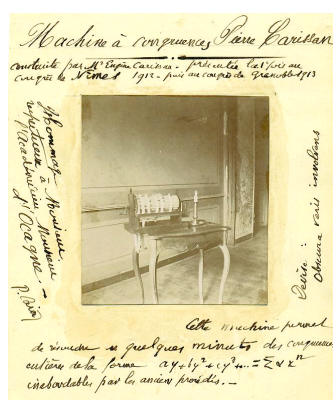 Machine à congruences Pierre Carissan
construite par Mr Eugène Carissan - présentée la 1e fois au
congrès de Nîmes 1912 - puis au congrès de Grenoble 1913
Hommage
respectueux à Monsieur
l'académicien
d'Ocagne. -
Devise :
Obscura veris involvens
Cette machine permet
de résoudre en quelques minutes des congruences
entières de la forme ay + by² + cy³ + ... = Σ α xⁿ
inabordables par les anciens procédés. -